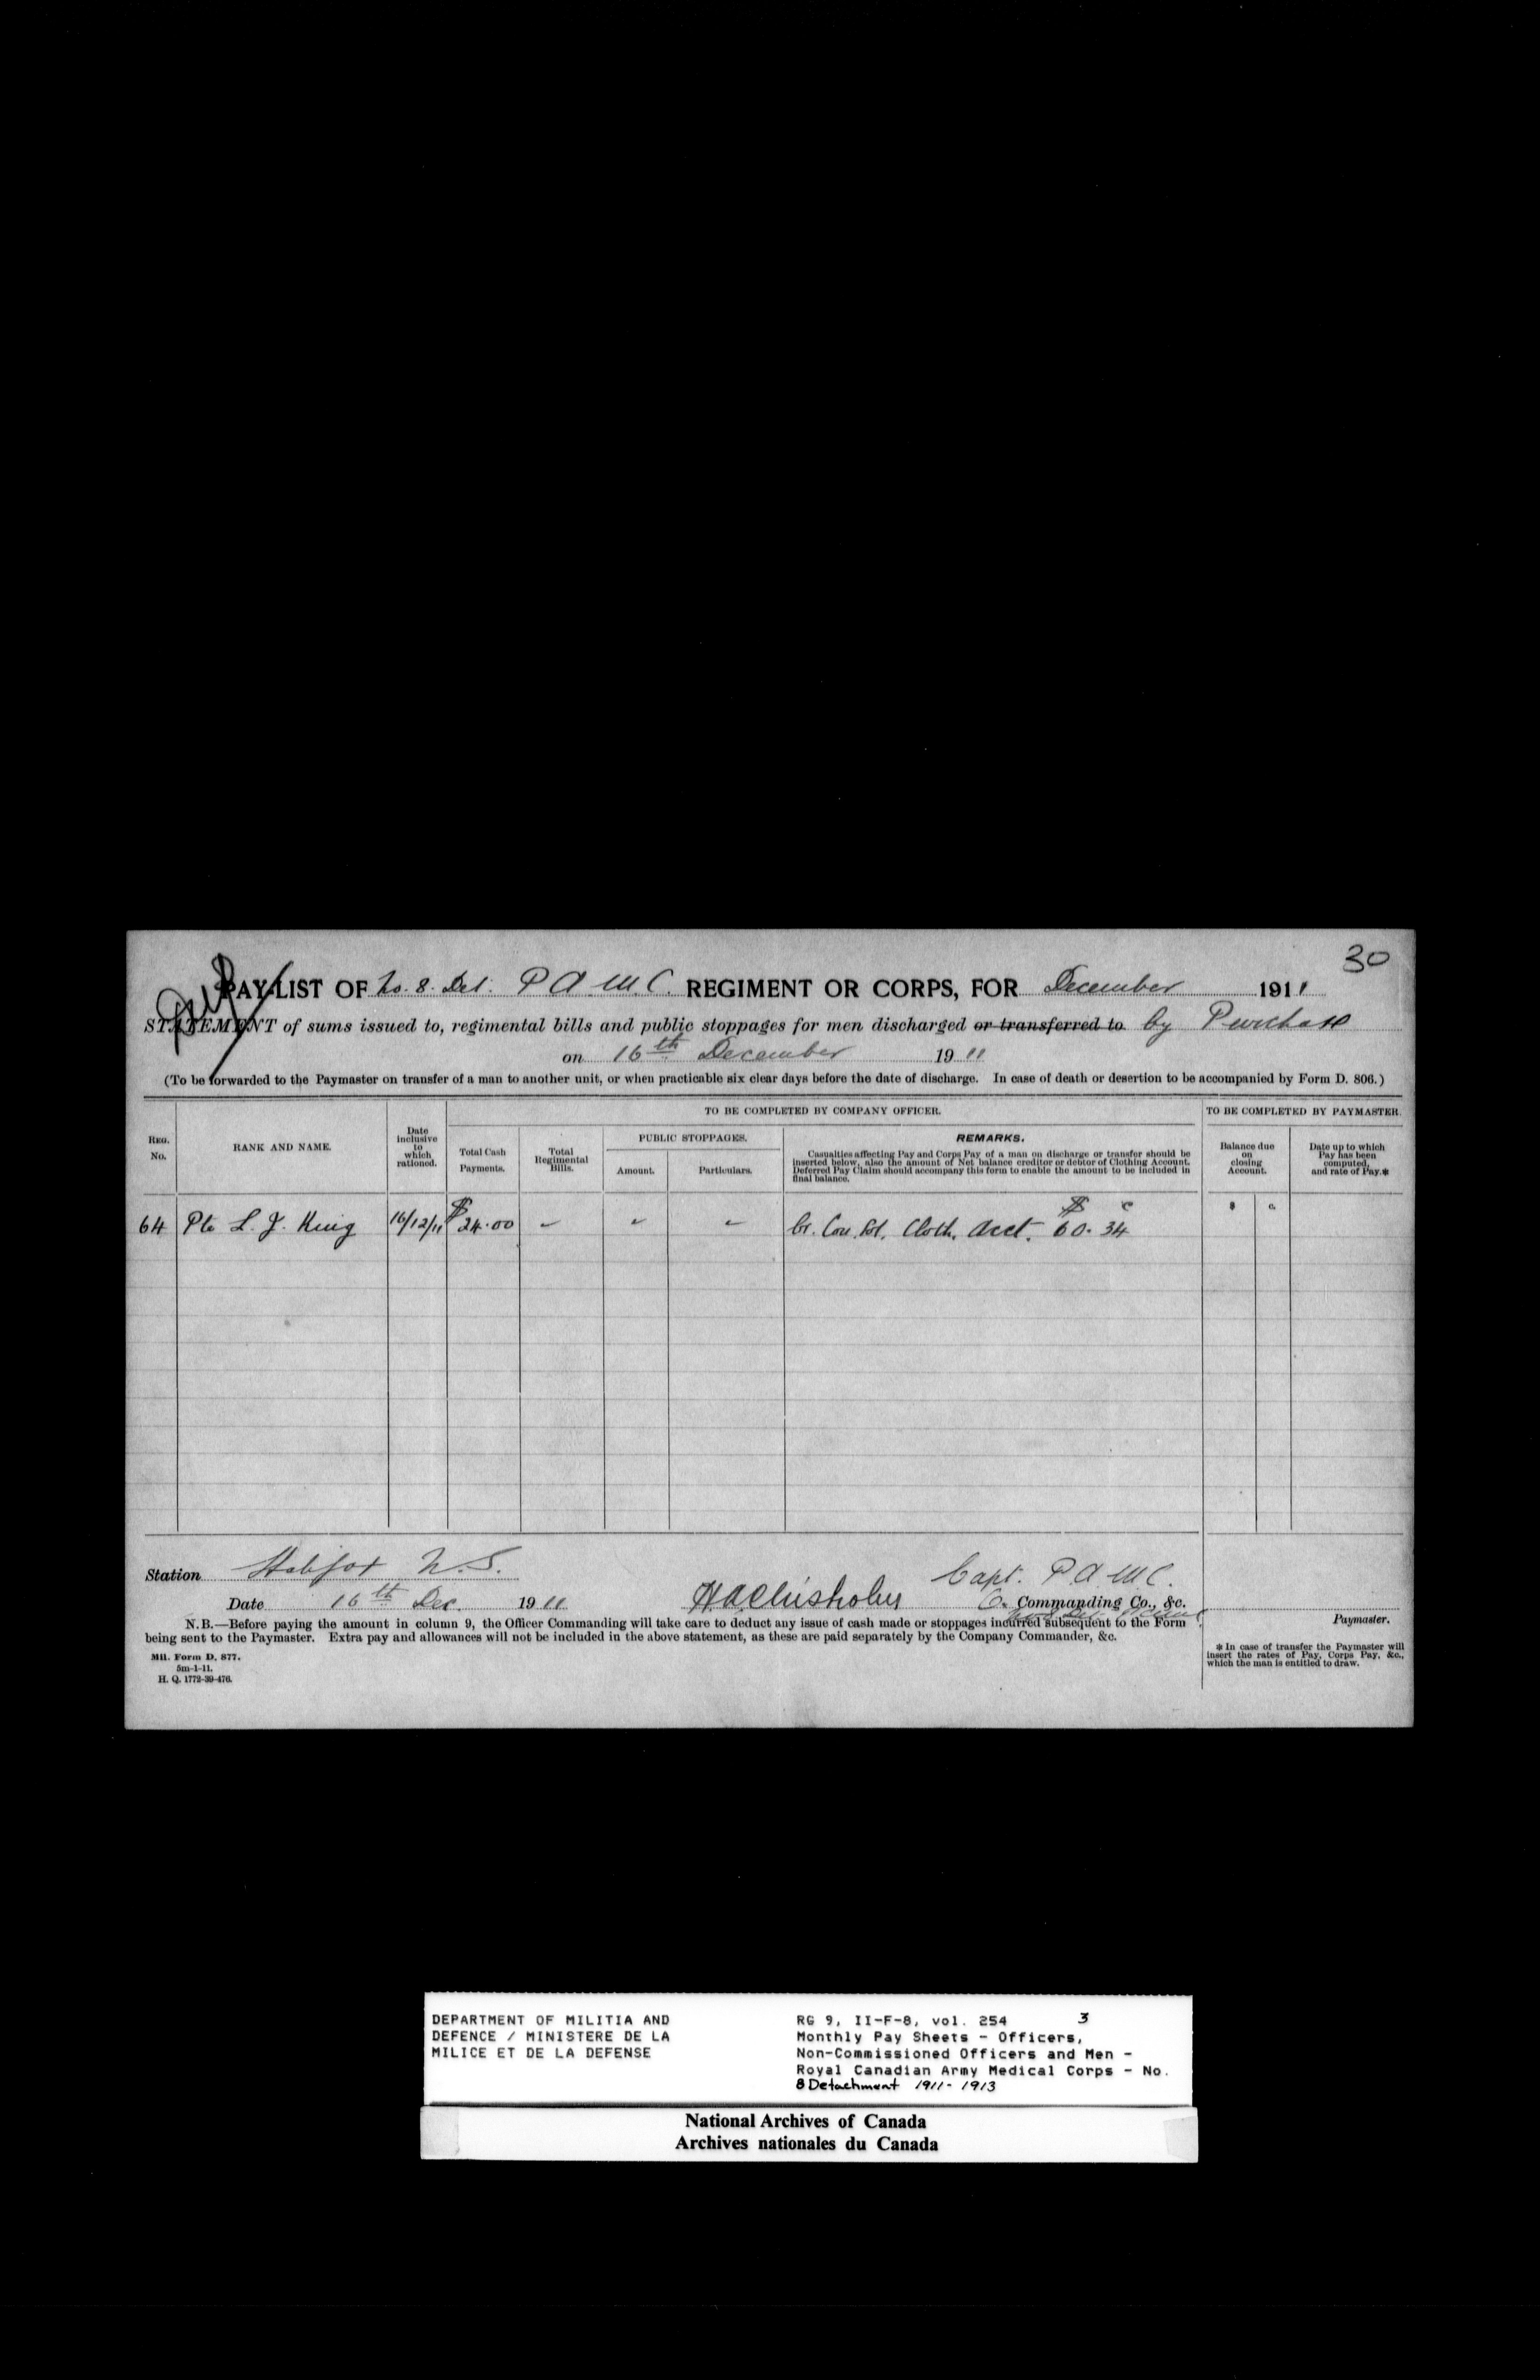 30
PAY-LIST OF No. 8. Det. P A M C. REGIMENT OR CORPS, FOR December 1911
STATEMENT of sums issued to, regimental bills and public stoppages for men discharged or transferred to by Purchase
on 16th December 1911
(To be forwarded to the Paymaster on transfer of a man to another unit, or when practicable six clear days before the date of discharge. In case of death or desertion to be accompanied by Form D. 806.)
TO BE COMPLETED BY COMPANY OFFICER. TO BE COMPLETED BY PAYMASTER.
REG. No.
RANK AND NAME.
Date inclusive to which rationed.
Total Cash Payments.
Total Regimental Bills.
PUBLIC STOPPAGES.
Amount. Particulars.
REMARKS.
Casualties affecting Pay and Corps Pay of a man on discharge or transfer should be
inserted below, also the amount of Net balance creditor or debtor of Clothing Account.
Deferred Pay Claim should accompany this form to enable the amount to be included in
final balance.
Balance due on closing Account.
Date up to which Pay has been computed, and rate of Pay.*
$ $ c $ c.
64 Pte L. J. King 16/12/11 24.00 – – – Cr. Cloth. Acct. 60. 34
Station Halifax N.S.
Capt. P A M C.
Date 16th Dec. 1911 H A Chisholm O. Commanding Co., &c.
Paymaster.
N.B.—Before paying the amount in column 9, the Officer Commanding will take care to deduct any issue of cash made or stoppages incurred subsequent to the Form
being sent to the Paymaster. Extra pay and allowances will not be included in the above statement, as these are paid separately by the Company Commander, &c.
* In case of transfer the Paymaster will
insert the rates of Pay, Corps Pay, &c.,
which the man is entitled to draw.
Mil. Form D. 877.
5m-1-11.
H. Q. 1772-39-476.
DEPARTMENT OF MILITIA AND
DEFENCE / MINISTERE DE LA
MILICE ET DE LA DEFENSE
RG 9, II-F-8, vol. 254 3
Monthly Pay Sheets - Officers,
Non-Commissioned Officers and Men -
Royal Canadian Army Medical Corps - No.
8 Detachment 1911- 1913
National Archives of Canada
Archives nationales du Canada